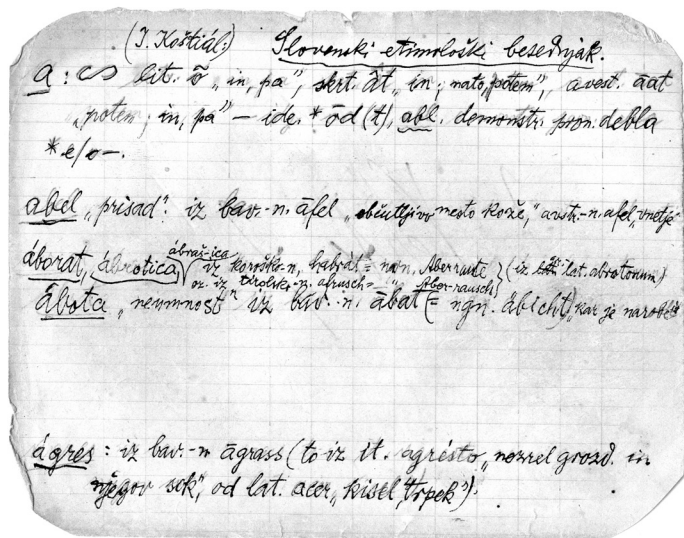 (I. Koštiál:) Slovenski etimološki besednjak.
a : ∾ lit. õ „in, pa", skrt. ât „in; nato, potem", avest. āat
„potem; in, pa" – ide. *ōd (t), abl. demonstr. pron. debla
*e/o–.
abel „prisad": iz bav.-n. āfel „občutljivo mesto kože," avstr.-n. afel „vnetje"
ábraš-ica
áborat, ábrotica, iz koroško-n. habrát = ngn. Aberraute (iz lat. abrotonum)
oz. iz tirolsko-n. abrusch= " Aber-rausch
ábota „neumnost" iz bav.-n. ābat (= ngn. ábicht) „kar je narobe
ágres : iz bav.-n āgrass (to iz it. agrésto „nezrel grozd. in
njegov sok", od lat. acer „kisel, trpek").